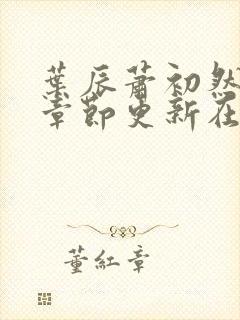 葉辰蕭初然
章節更新在
董紅章